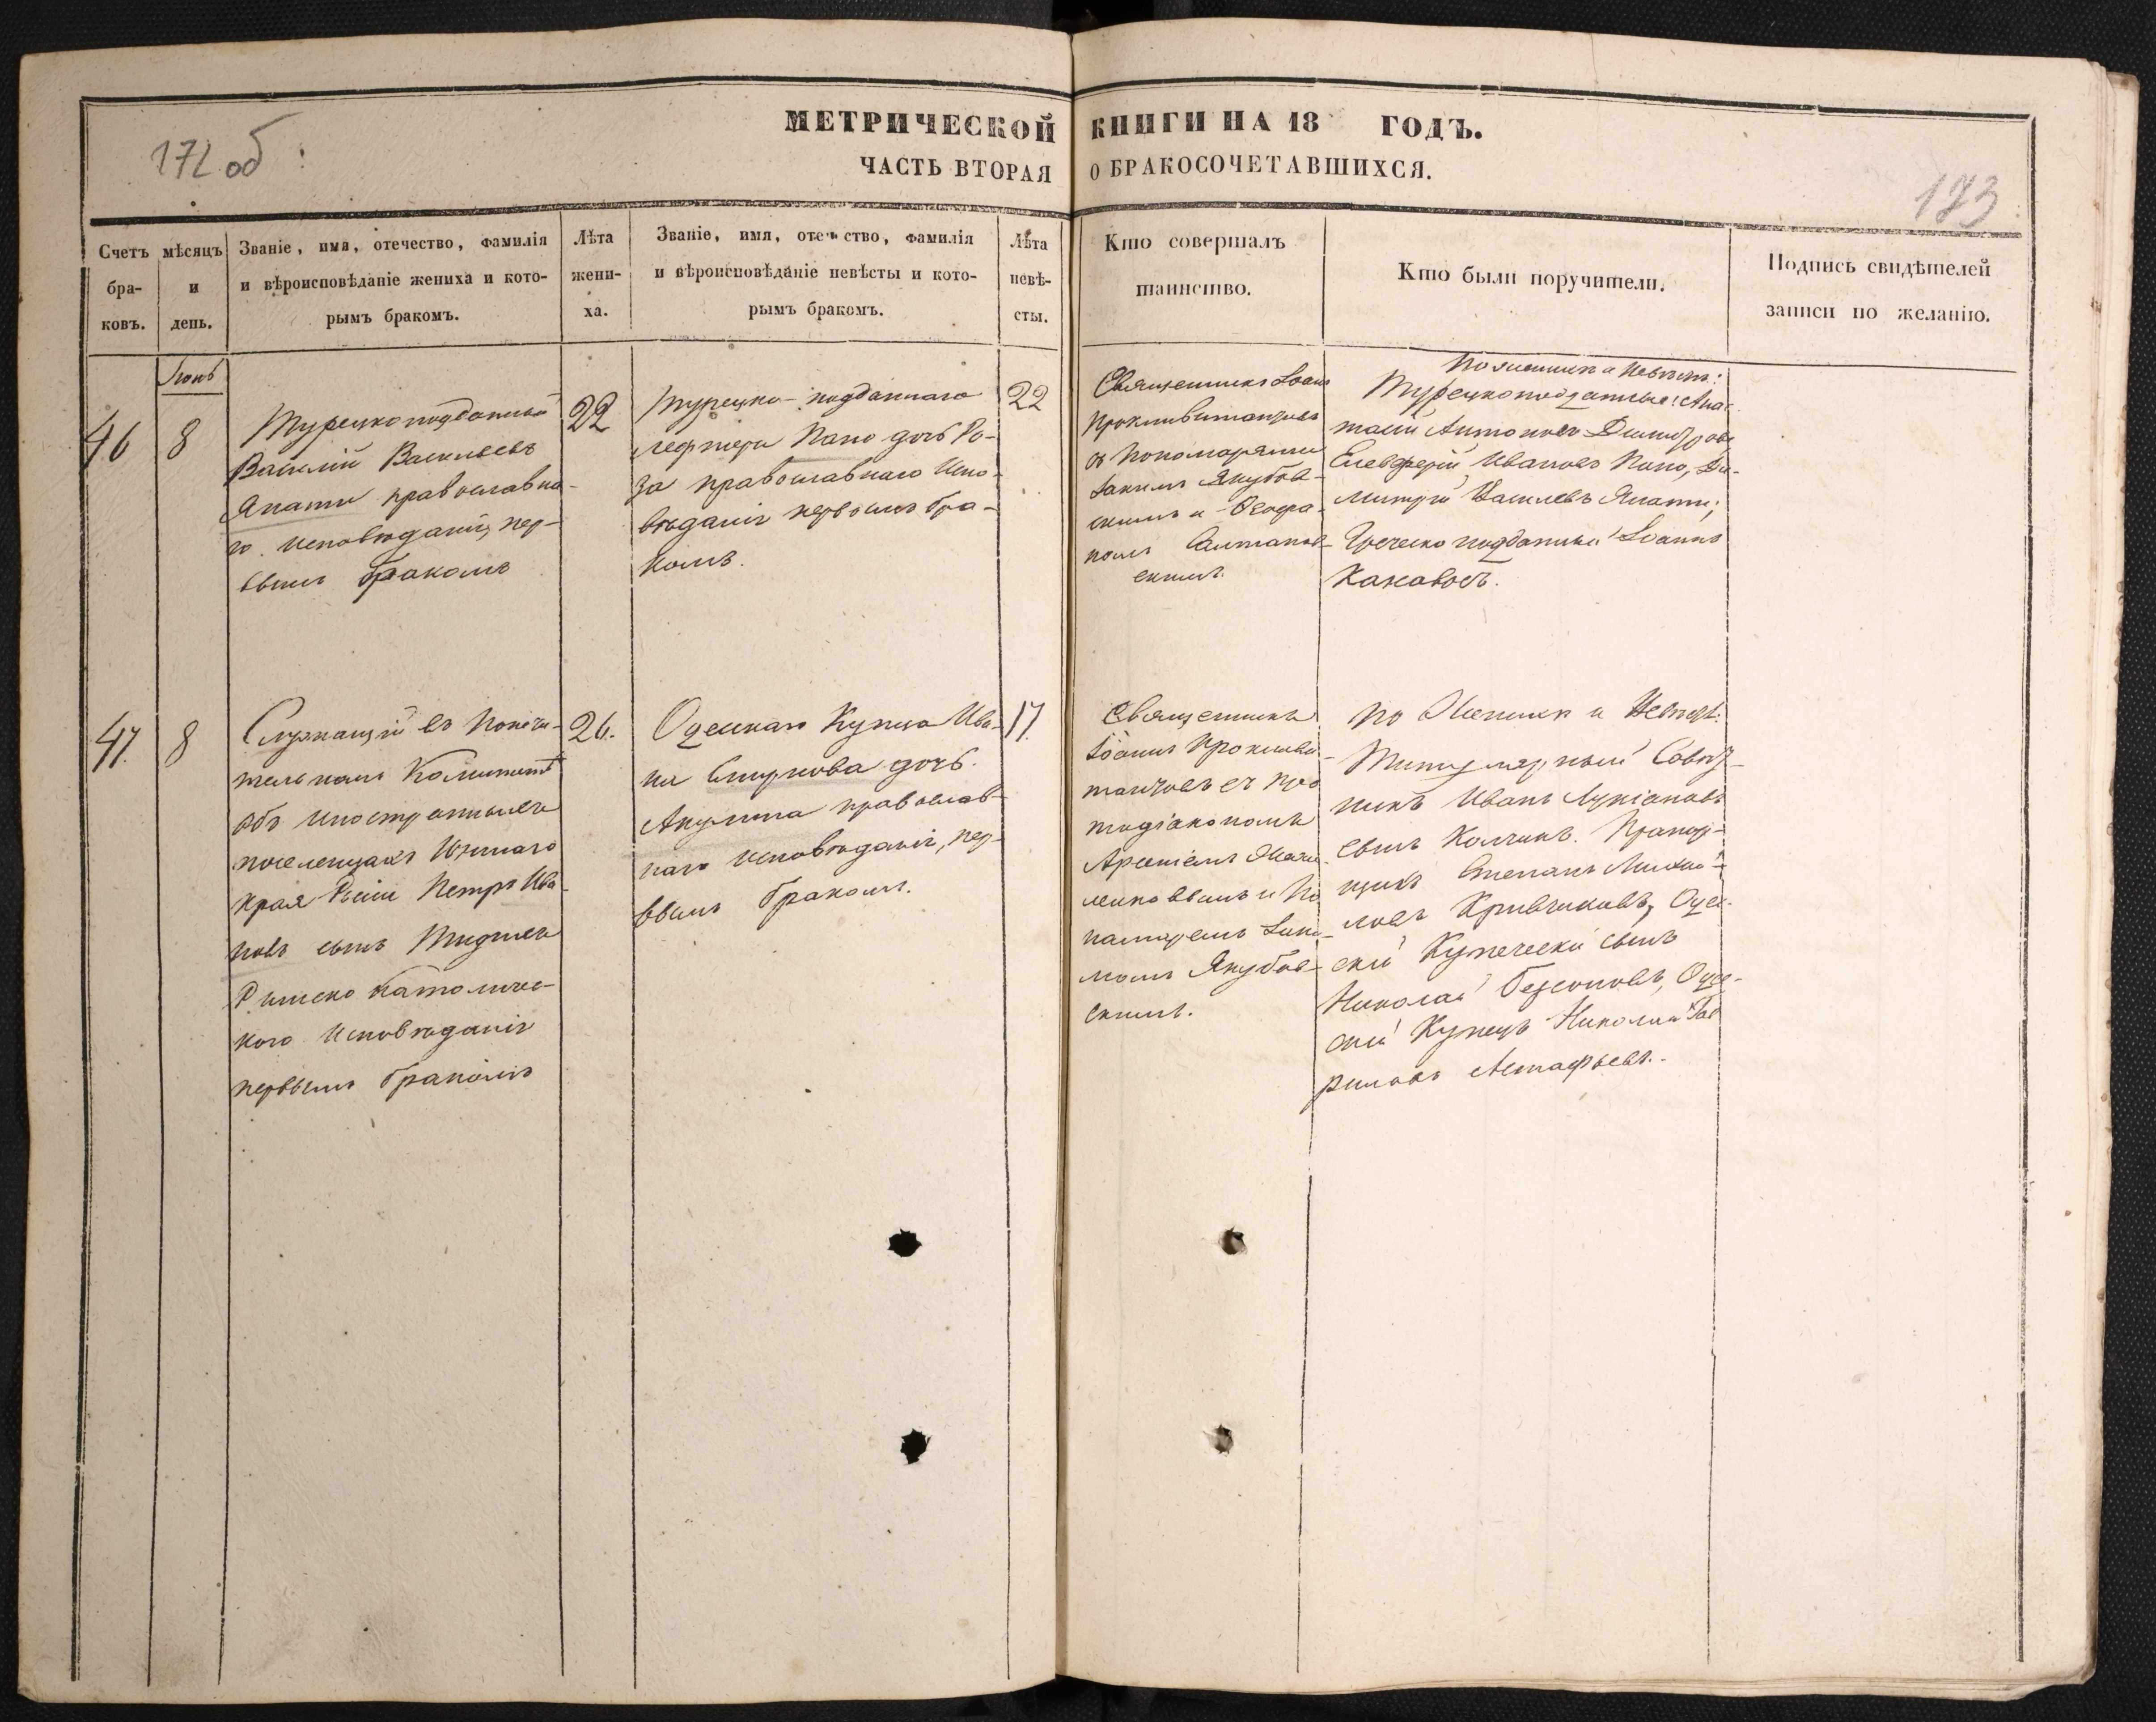 172 об:
МЕТРИЧЕСКОЙ КНИГИ НА 18 ГОДЪ.
ЧАСТЬ ВТОРАЯ О БРАКОСОЧЕТАВШИХСЯ.
173
Счетъ бра-ковъ.
мѣсяцъ и день.
Званіе, имя, отечество, фамилія
и вѣроисповѣданіе жениха и кото-
рымъ бракомъ.
Лѣта
жени-
ха.
Званіе, имя, отечество, фамилія
и вѣроисповѣданіе невѣсты и кото-
рымъ бракомъ.
Лѣта
невѣ-
сты.
Кто совершалъ
таинство.
Кто были поручители.
Подпись свидѣтелей
записи по желанію.
46
8
Турецкоподданный
Василій Васильевъ
Япати православна-
го исповѣданія, пер-
вымъ бракомъ
22
Турецко-подданнаго
Папо дочь Ро-
за православнаго Испо-
вѣданія первымъ бра-
комъ.
22
Священникъ Іоаннъ
съ Пономарями
Якубов-
скимъ и
скимъ.
По женихѣ и Невѣстѣ:
Турецкоподданные: Анас-
тасій Антоновъ
Елевферій Ивановъ Папо, Ди-
митрій Василевъ Япати;
Греческоподданный Іоаннъ
47.
8
Служащій въ Попечи-
тельномъ Комитетѣ
объ иностранныхъ
поселенцахъ Южнаго
края Россіи Петръ Ива-
новъ сынъ
Римско Католичес-
кого Исповѣданія
первымъ бракомъ
26.
Одесскаго Купца Ива-
на Смирнова дочь
Акулина православ-
наго исповѣданія, пер-
вымъ бракомъ.
17.
Священникъ
Іоаннъ
съ про
тодіакономъ
и По
намаремъ
Якубов-
скимъ.
По Женихѣ и Невѣстѣ:
Титулярный Совѣт-
никъ Иванъ Лукіановъ
сынъ Колчинъ. Прапор-
щикъ Степанъ Михай-
ловъ Кривчиковъ, Одес-
скій Купеческій сынъ
Николай Безсоновъ, Одес-
скій Купецъ Николай Гав
риловъ Астафьевъ.